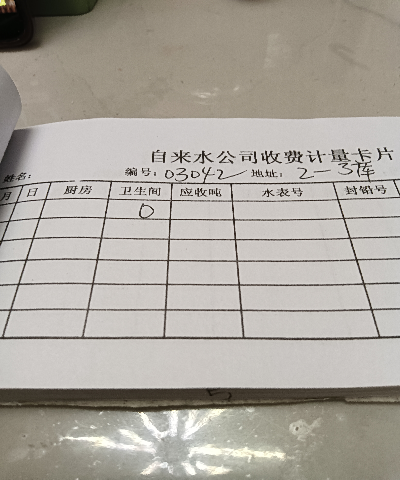 自来水公司收费计量卡片
姓名: 编号: 03042 地址: 2-3库
月 日 厨房 卫生间 应收吨 水表号 封铅号
0
5